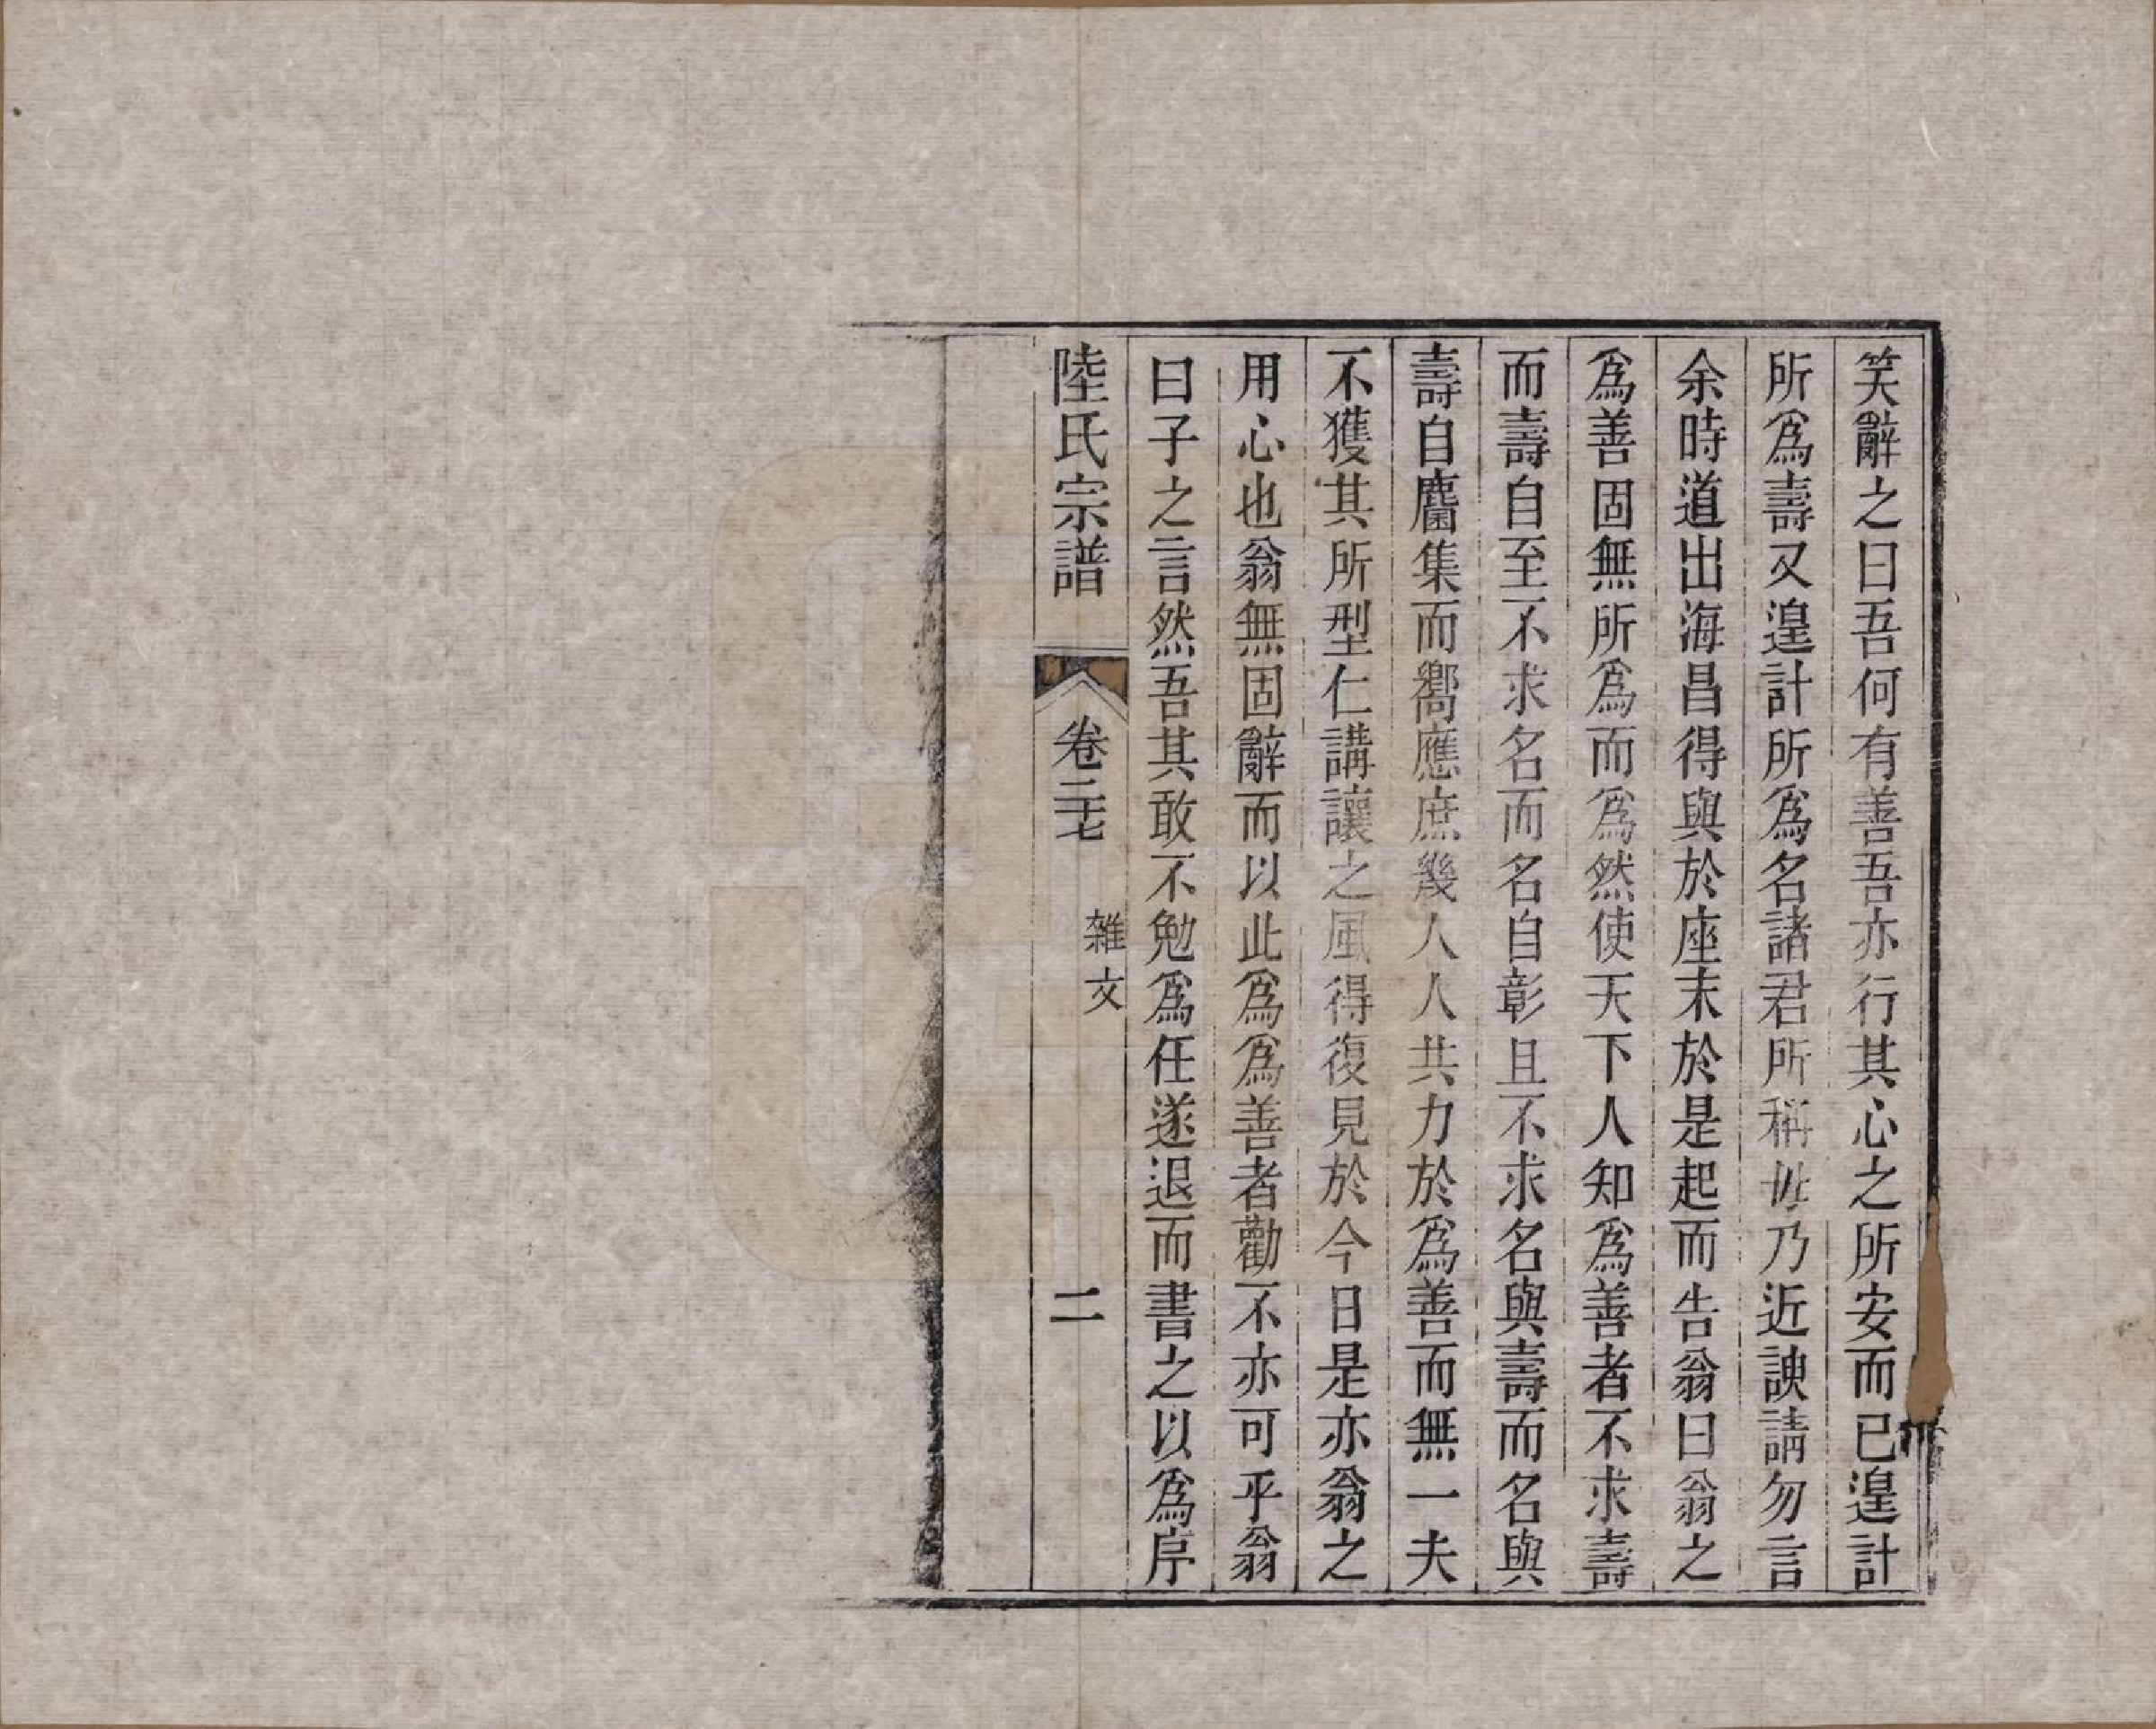 笑辭之曰吾何有善吾亦行其心之所安而已遑計
所爲壽又遑計所爲名諸君所稱毋乃近諛請勿言
余時道出海昌得與於座末於是起而告翁曰翁之
爲善固無所爲而爲然使天下人知爲善者不求壽
而壽自至不求名而名自彰且不求名與壽而名與
壽自麕集而嚮應庶幾人人共力於爲善而無一夫
不獲其所型仁講讓之風得復見於今日是亦翁之
用心也翁無固辭而以此爲爲善者勸不亦可乎翁
曰子之言然吾其敢不勉爲任遂退而書之以爲序
陸氏宗譜
卷二十七
雜文
二